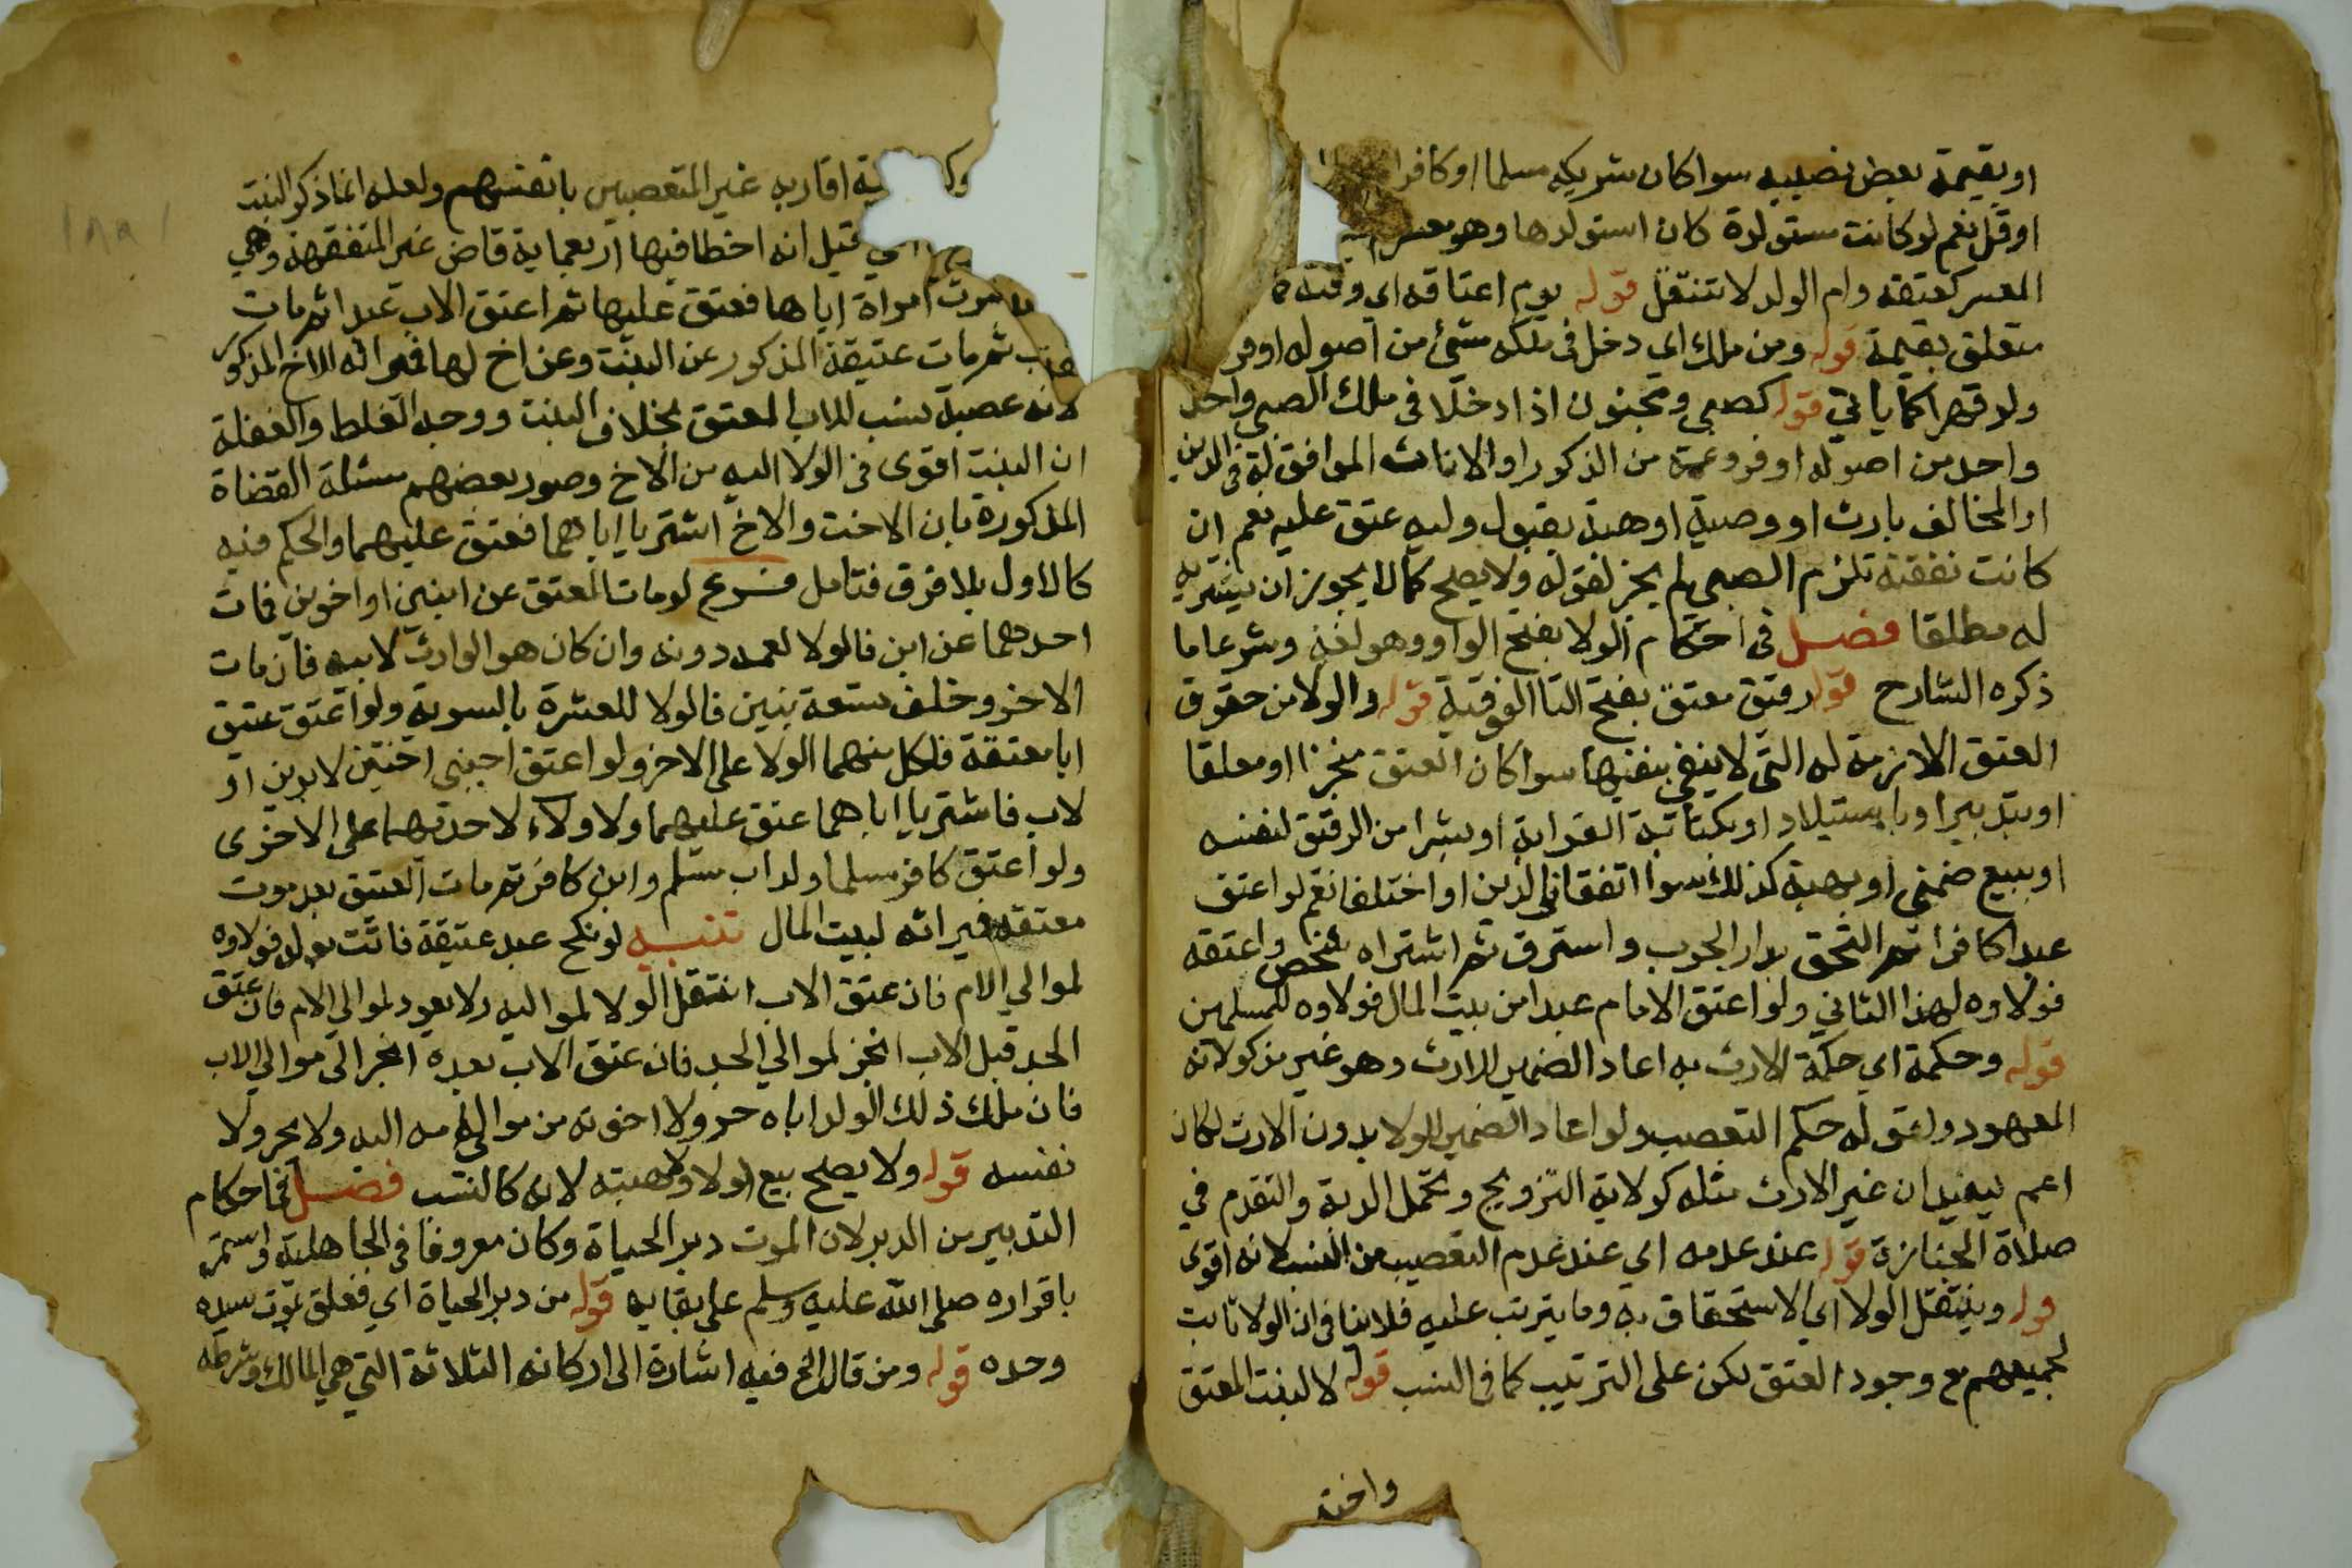 او بقيمة بعض نصيبه سوا كان شريكه مسلما او كافرا
او قل نعم لو كانت مستولدة كان استولدها وهو معسر
المعسر كعتقه وام الولد لا تنتقل قوله يوم اعتاقه اي وقته
متعلق بقيمة قوله ومن ملك اي دخل في ملكه شئ من اصوله او فر
ولو قهرا كما ياتي قوله كصبي ومجنون اذا دخلا في ملك الصبي واحد
واحد من اصوله او فروعه من الذكور او الاناث الموافق له في الدين
او المخالف بارث او وصية او هبة بقبول وليه عتق عليه نعم ان
كانت نفقته تلزم الصبي لم يجز لقوله ولا يصلح كما لا يجوز ان يشتريه
له مطلقا فصل في احكام الولا بفتح الواو وهو لغة وشرعا ما
ذكره الشارح قوله رقيق معتق بفتح التا الفوقية قوله والولا من حقوق
العتق اللازمة له التي لا ينتفي بنفيها سوا كان العتق منجزا او معلقا
او بتدبير او باستيلاد او بكتابة القرابة او بشرا من الرقيق لنفسه
او ببيع ضمني او بهبة كذلك سوا اتفقا في الدين او اختلفا نعم لو اعتق
عبدا كافرا ثم التحق بدار الحرب واسترق ثم اشتراه شخص واعتقه
فولاوه لهذا الثاني ولو اعتق الامام عبدا من بيت المال فولاوه للمسلمين
قوله وحكمه اي حكمة الارث به اعاد الضمير للارث وهو غير مذكور لانه
المعهود ولقوله حكم التعصيب ولو اعاد الضمير للولا بدون الارث لكان
اعم ليفيد ان غير الارث مثله كولاية التزويج وتحمل الدية والتقدم في
صلاة الجنازة قوله عند عدمه اي عند عدم التعصيب من النسب لانه اقوى
قوله وينتقل الولا اي الاستحقاق به وما يترتب عليه فلا ينافي ان الولا ثابت
لجميعهم مع وجود العتق لكن على الترتيب كما في النسب قوله لا لبنت المعتق
واخته
ية اقاربه غير المتعصبين بانفسهم ولعله انما ذكر البنت
قيل انه اخطا فيها اربعماية قاض غير المتفقهة وهي
امراة اباها فعتق عليها ثم اعتق الاب عبدا ثم مات
ثم مات عتيقه المذكور عن البنت وعن اخ لها فميراثه للاخ المذكور
لانه عصبة نسب للاب المعتق بخلاف البنت ووجه الغلط والغفلة
ان البنت اقوى في الولا اليه من الاخ وصور بعضهم مسئلة القضاة
المذكورة بان الاخت والاخ اشتريا اباهما فعتق عليهما والحكم فيه
كالاول بلا فرق فتامل فرع لو مات المعتق عن ابنين او اخوين فمات
احدهما عن ابن فالولا لعمه دونه وان كان هو الوارث لابيه فان مات
الاخر وخلف تسعة بنين فالولا للعشرة بالسوية ولو اعتق عتيق
ابا معتقه فلكل منهما الولا على الاخر ولو اعتق اجنبي اختين لابوين او
لاب فاشتريا اباهما عتق عليهما ولا ولاء لاحدتهما على الاخرى
ولو اعتق كافر مسلما وله اب مسلم وابن كافر ثم مات العتيق بعد موت
معتقه فميراثه لبيت المال تنبيه لو نكح عبد عتيقة فاتت بولد فولاوه
لموالي الام فان عتق الاب انتقل الولا لمواليه ولا يعود لموالي الام فان عتق
الجد قبل الاب انجر لموالي الجد فان عتق الاب بعده انجر الى موالي الاب
فان ملك ذلك الولد اباه جر ولا اخوته من موالي امه اليه ولا يجر ولا
نفسه قوله ولا يصلح بيع الولا ولا هبته لانه كالنسب فصل في احكام
التدبير من الدبر لان الموت دبر الحياة وكان معروفا في الجاهلية واستمر
باقراره صلى الله عليه وسلم على بقايه قوله من دبر الحياة اي فعلق بموت سيده
وحده قوله ومن قال الخ فيه اشارة الى اركانه الثلاثة التي هي المالك وشرطه